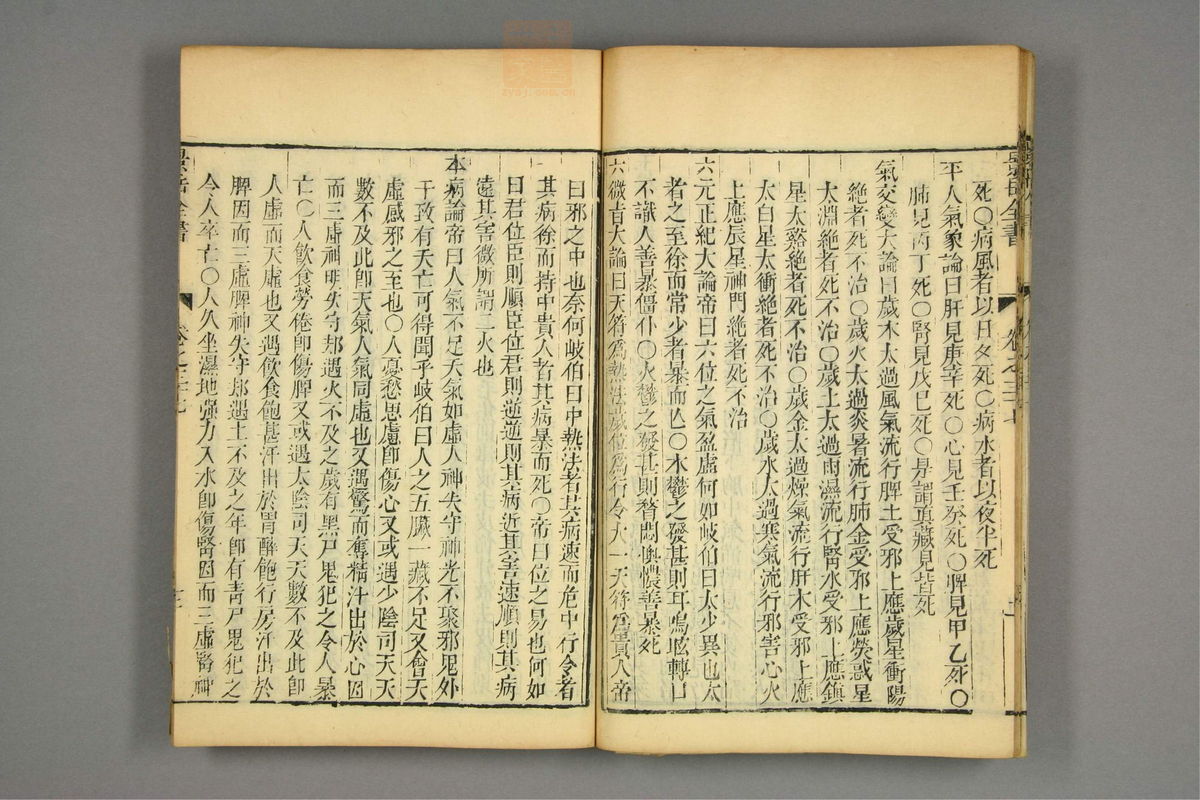 死○病風者以日夕死○病水者以夜半死
平人氣象論曰肝見庚辛死○心見壬癸死○脾見甲乙死○
肺見丙丁死○腎見戊巳死○是謂真藏見皆死
氣交變大論曰歲木太過風氣流行脾土受邪上應歲星衝陽
絶者死不治○歲火太過炎暑流行肺金受邪上應熒惑星
太淵絶者死不治○歲土太過雨濕流行腎水受邪上應鎮
星太谿絶者死不治○歲金太過燥氣流行肝木受邪上應
太白星太衝絶者死不治○歲水太過寒氣流行邪害心火
上應辰星神門絶者死不治
六元正紀大論帝曰六位之氣盈虛何如岐伯曰太少異也太
者之至徐而常少者暴而亡○木鬱之發甚則耳鳴眩轉目
不識人善暴僵仆○火鬱之發甚則瞀悶懊憹善暴死
六微旨大論曰天符為執法歲位為行令太一天符為貴人帝
曰邪之中也奈何岐伯曰中執法者其病速而危中行令者
其病徐而持中貴人者其病暴而死○帝曰位之易也何如
曰君位臣則順臣位君則逆逆則其病近其害速順則其病
遠其害微所謂二火也
本病論帝曰人氣不足天氣如虛人神失守神光不聚邪鬼外
干致有夭亡可得聞乎岐伯曰人之五臟一藏不足又會天
虛感邪之至也○人憂愁思慮卽傷心又或遇少陰司天天
數不及此卽天氣人氣同虛也又遇驚而奪精汗出於心因
而三虛神明失守却遇火不及之歲有黑尸鬼犯之令人暴
亡○人飲食勞倦卽傷脾又或遇太陰司天天數不及此卽
人虛而天虛也又遇飲食飽甚汗出於胃醉飽行房汗出於
脾因而三虛脾神失守却遇土不及之年卽有青尸鬼犯之
令人卒亡○人久坐濕地強力入水卽傷腎因而三虛腎神
景岳全書
卷之三十七